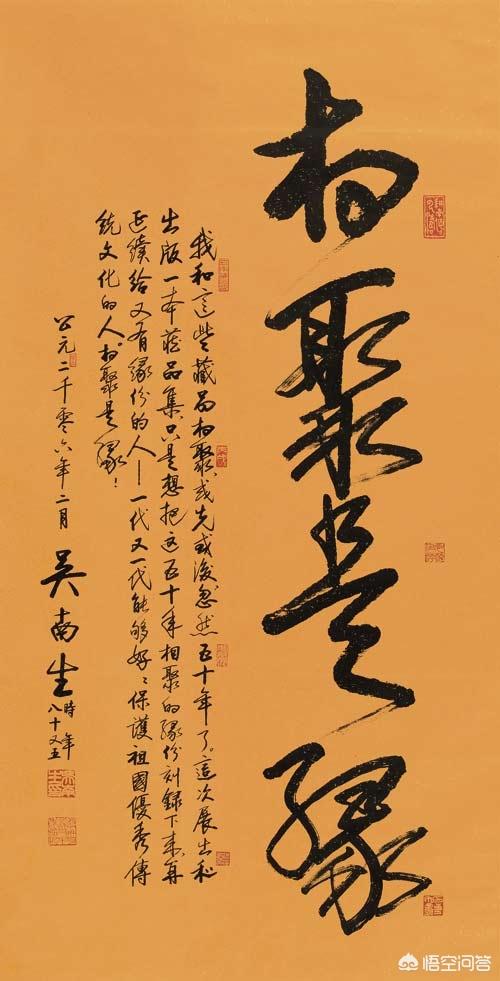 相聚是緣
我和這些藏品相聚或先或後忽然五十年了。這次展出和
出版一本藏品集只是想把这五十年相聚的緣份刻錄下来再
延續给又有緣份的人—一代又一代能够好〻保護祖國優秀傳
統文化的人相聚是緣！
公元二千零六年二月
吴南生
時年
八十又五
悟空问答